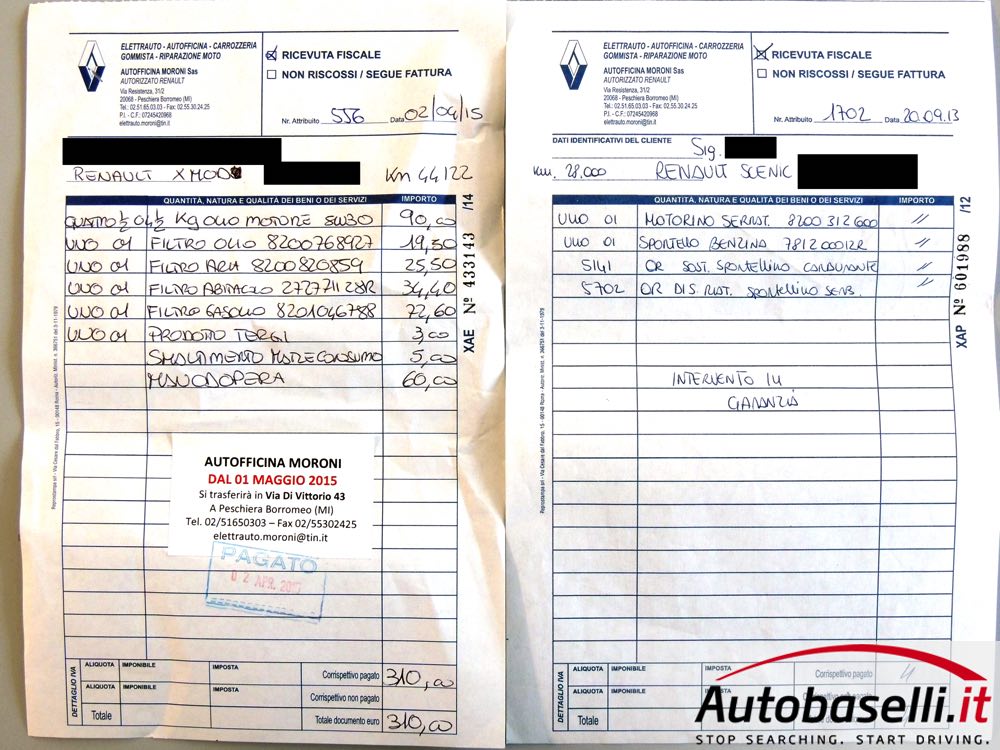 ELETTRAUTO - AUTOFFICINA - CARROZZERIA
GOMMISTA - RIPARAZIONE MOTO
AUTOFFICINA MORONI Sas
AUTORIZZATO RENAULT
Via Resistenza, 31/2
20068 - Peschiera Borromeo (MI)
Tel.: 02.51.65.03.03 - Fax: 02.55.30.24.25
P.I. - C.F.: 07245420968
elettrauto.moroni@tin.it
RICEVUTA FISCALE
NON RISCOSSI / SEGUE FATTURA
Nr. Attribuito 556 Data 02/04/15
RENAULT XMOD Km 44122
QUANTITÀ, NATURA E QUALITÀ DEI BENI O DEI SERVIZI IMPORTO
QUATTRO ½ 04½ Kg OLIO MOTORE 5W30 90,00
UNO 01 FILTRO OLIO 8200768927 19,50
UNO 01 FILTRO ARIA 8200820859 25,50
UNO 01 FILTRO ABITACOLO 272774128R 34,40
UNO 01 FILTRO GASOLIO 8201046788 72,60
UNO 01 PRODOTTO TERGI 3,00
SMALTIMENTO MAT E CONSUMO 5,00
MANODOPERA 60,00
XAE Nº 433143 /14
AUTOFFICINA MORONI
DAL 01 MAGGIO 2015
Si trasferirà in Via Di Vittorio 43
A Peschiera Borromeo (MI)
Tel. 02/51650303 – Fax 02/55302425
elettrauto.moroni@tin.it
PAGATO
02 APR. 2015
DETTAGLIO IVA
ALIQUOTA IMPONIBILE IMPOSTA
Corrispettivo pagato 310,00
Corrispettivo non pagato
Totale Totale documento euro 310,00
ELETTRAUTO - AUTOFFICINA - CARROZZERIA
GOMMISTA - RIPARAZIONE MOTO
AUTOFFICINA MORONI Sas
AUTORIZZATO RENAULT
Via Resistenza, 31/2
20068 - Peschiera Borromeo (MI)
Tel.: 02.51.65.03.03 - Fax: 02.55.30.24.25
P.I. - C.F.: 07245420968
elettrauto.moroni@tin.it
RICEVUTA FISCALE
NON RISCOSSI / SEGUE FATTURA
Nr. Attribuito 1702 Data 20.09.13
DATI IDENTIFICATIVI DEL CLIENTE
Sig.
Km. 28.000 RENAULT SCENIC
QUANTITÀ, NATURA E QUALITÀ DEI BENI O DEI SERVIZI IMPORTO
UNO 01 MOTORINO SERRAT. 8200312600 //
UNO 01 SPORTELLO BENZINA 781200012R //
5141 OR SOST. SPORTELLINO CARBURANTE //
5702 OR DIS. RIAT. SPORTELLINO SERB. //
INTERVENTO IN
GARANZIA
XAP Nº 601988 /12
DETTAGLIO IVA
ALIQUOTA IMPONIBILE IMPOSTA
Corrispettivo pagato //
Totale
Autobaselli.it
STOP SEARCHING. START DRIVING.